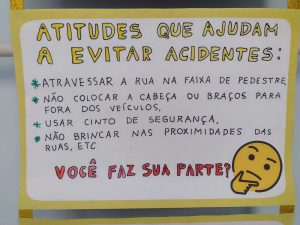 ATITUDES QUE AJUDAM
A EVITAR ACIDENTES:
* ATRAVESSAR A RUA NA FAIXA DE PEDESTRE,
* NÃO COLOCAR A CABEÇA OU BRAÇOS PARA
FORA DOS VEÍCULOS,
* USAR CINTO DE SEGURANÇA,
* NÃO BRINCAR NAS PROXIMIDADES DAS
RUAS, ETC
VOCÊ FAZ SUA PARTE?